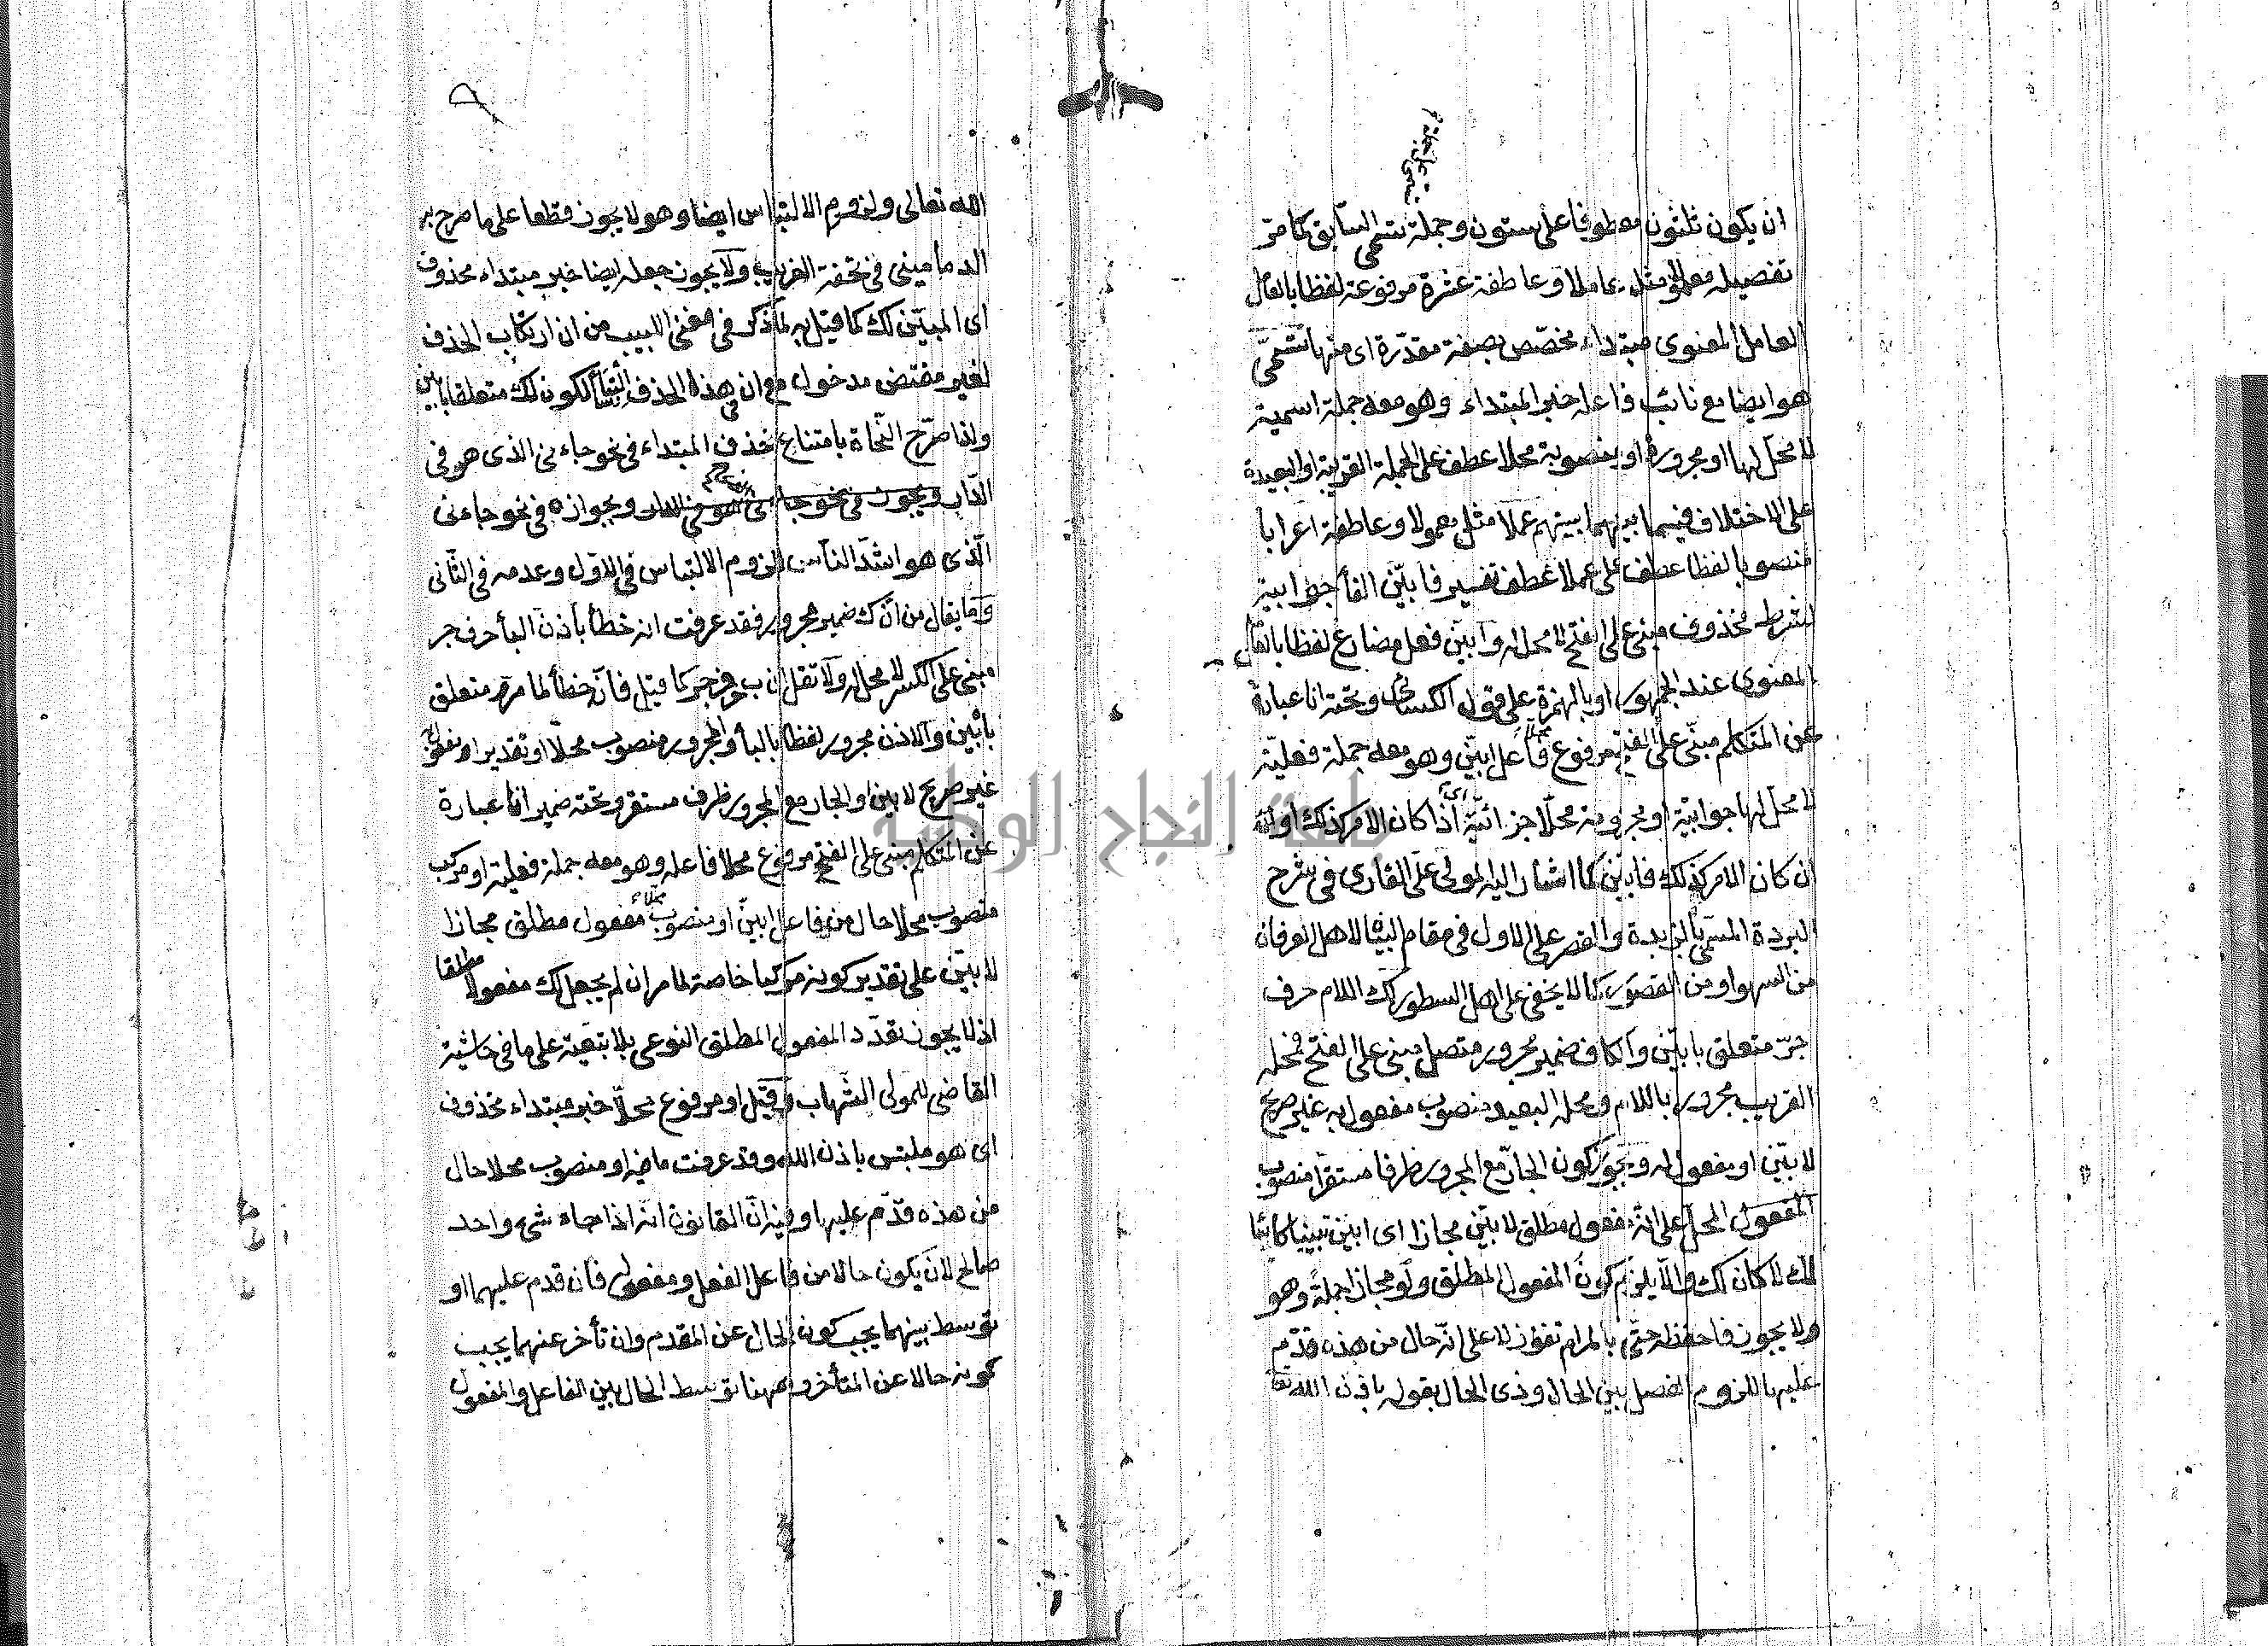 ان يكون ثلثون معطوفا على ستون وجملة تسمى السابق كما مرّ
تفصيله معمولا مثل عاملا وعاطفة عشرة مرفوعة لفظا بالعامل
العامل المعنوى مبتداء مخصّص بصفة مقدّرة اى منها تسمّى
هو ايضا مع نائب فاعله خبر المبتداء وهو معه جملة اسمية
لا محل لها او مجرورة او منصوبة محلا عطف على الجملة القريبة او البعيدة
على الاختلاف فيما بينهم عملا مثل معمولا وعاطفة اعرابا
منصوب لفظا عطف على عملا عطف تفسير فابيّن الفاء جوابية
لشرط محذوف مبنى على الفتح لا محل له وابيّن فعل مضارع لفظا بالعامل
المعنوى عند الجمهور او بالهمزة على قول الكسائى وتحته انا عبارة
عن المتكلم مبنى على الفتح مرفوع محلا فاعل ابيّن وهو معه جملة فعليّة
لا محل لها جوابيّة او مجزومة محلا جزائيّة اى اذا كان الامر كذلك او
ان كان الامر كذلك فابيّن كما اشار اليه المولى على القارى فى شرح
البردة المسمّى بالزبدة والقصر على الاول فى مقام البيان لاهل العرفان
من السهو او من القصور كما لا يخفى على اهل السطور لك اللام حرف
جرّ متعلق بابيّن والكاف ضمير مجرور متصل مبنى على الفتح فمحله
القريب مجرور باللام ومحله البعيد منصوب مفعول به غير صريح
لابيّن او مفعول له ويجوز كون الجار مع المجرور ظرفا مستقرا منصوب
المحل على انّه مفعول مطلق لابيّن مجازا اى ابيّن تبيينا كائنا
لك لا كان لك والا يلزم كون المفعول المطلق ولو مجازا جملة وهو
لا يجوز فاحفظه حتّى بالمرام تفوز لا على انّه حال من هذه قدّم
عليها للزوم الفصل بين الحال وذى الحال بقوله باذن الله تعا
الله تعالى ولزوم الالتباس ايضا وهو لا يجوز قطعا على ما صرح به
الدمامينى فى تحفة الغريب ولا يجوز جعله ايضا خبر مبتداء محذوف
اى المبيّن لك كما قيل به لما ذكر فى مغنى اللبيب من ان ارتكاب الحذف
لغير مقتض مدخول مع ان فى هذا الحذف التباسا لكون لك متعلقا بابيّن
ولذا صرّح النّحاة بامتناع حذف المبتداء فى نحو جاءنى الذى هو فى
الدّار وبجوازه فى نحو جاءنى
الّذى هو اشدّ الناس للزوم الالتباس فى الاوّل وعدمه فى الثّانى
وما يقال من انّ ك ضمير مجرور فقد عرفت انه خطأ باذن الباء حرف جر
مبنى على الكسر لا محل له ولا تقل ان ب حرف جر كما قيل فانّه خطأ لما مرّ متعلق
بابيّن والاذن مجرور لفظا بالباء والمجرور منصوب محلا او تقديرا مفعوله
غير صريح لابيّن او الجار مع المجرور ظرف مستقر وتحته ضمير انا عبارة
عن المتكلم مبنى على الفتح مرفوع محلا فاعله وهو معه جملة فعلية او مركب
منصوب محلا حال من فاعل ابيّن او منصوب محلا مفعول مطلق مجازا
لابيّن على تقدير كونه مركبا خاصة لما مر ان لم يجعل لك مفعولا مطلقا
اذ لا يجوز تعدّد المفعول المطلق النوعى بلا تبعية على ما فى حاشية
القاضى للمولى الشّهاب وقيل او مرفوع محلّا خبر مبتداء محذوف
اى هو ملتبس باذن الله وقد عرفت ما فيه او منصوب محلا حال
من هذه قدّم عليها وفيه انّ القانون انّه اذا جاء شئ واحد
صالح لان يكون حالا من فاعل الفعل ومفعوله فان قدم عليهما او
توسط بينهما يجب كون الحال عن المقدم وان تأخر عنهما يجب
كونه حالا عن المتأخر وههنا توسط الحال بين الفاعل والمفعول
جامعة النجاح الوطنية